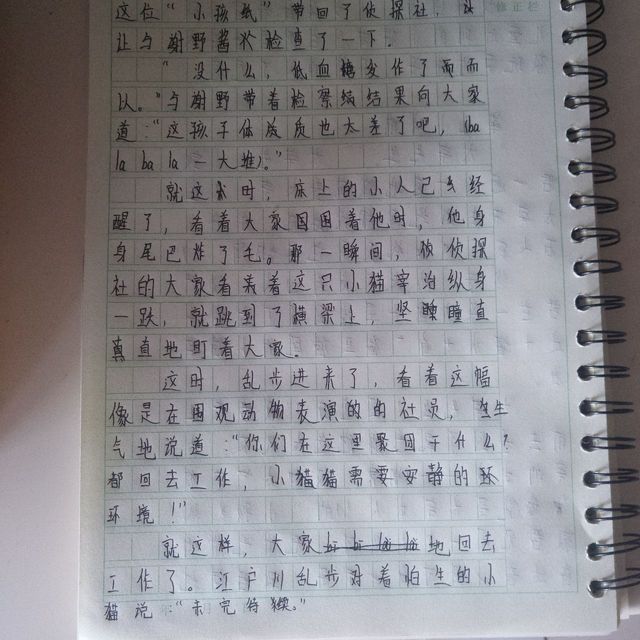 这位"小孩纸"带回了侦探社,
修正栏
让与谢野酱检查了一下.
"没什么,低血糖发作了而而
以。"与谢野带着检察结果向大家
道:"这孩子体质也太差了吧,(ba
la ba la 一大堆)。"
就这时,床上的小人已经
醒了,看着大家围着他时,他身
身尾巴炸了毛。那一瞬间,侦探
社的大家看着这只小猫宰治纵身
一跃,就跳到了横梁上,坚瞳直
真直地盯着大家。
这时,乱步进来了,看着这幅
像是在围观动物表演的的社员,生
气地说道:"你们在这里聚团干什么?
都回去工作,小猫猫需要安静的环
环境!"
就这样,大家地回去
工作了。江户川乱步对着怕生的小
猫说:"未完待续。"